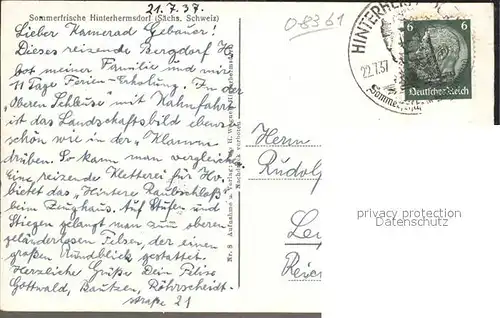 21.7.37.
Sommerfrische Hinterhermsdorf (Sächs. Schweiz)
Lieber Kamerad Gebauer!
Dieses reizende Bergdorf H.
bot meiner Familie und mir
11 Tage Ferien-Erholung. In der
"Oberen Schleuse" mit Kahnfahrt
ist das Landschaftsbild ebenso
schön wie in der "Klamm
drüben. So kann man vergleichen
Eine reizende Kletterei für
bietet das "Hintere Raubschloß"
beim Zeughaus. Auf Stufen und
Stiegen gelangt man zum oberen
geländerlosen Felsen, der einen
großen Rundblick gestattet.
Herzliche Grüße Dein
Gottwald, Bautzen, Röhrscheidt-
straße 21
Nr. 8 Aufnahme u. Verlag H.
Nachdruck verboten
0-8361
HINTERHERMSDORF
22.7.37
Sommer
6 6
Deutsches Reich
Herrn
Rudolf
privacy protection
samples